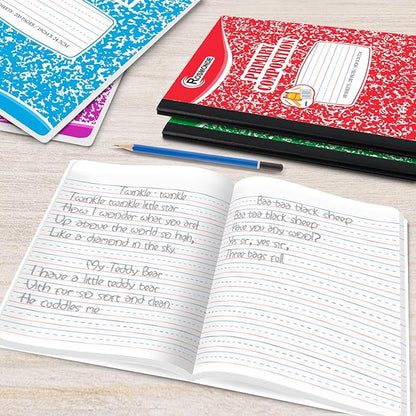 ROSMONDE
PRIMARY
COMPOSITION
Twinkle - twinkle
Twinkle twinkle little star
How I wonder what you are!
Up above the world so hah,
Like a diamond in the sky.
My Teddy Bear
I have a little teddy bear
Uith for so sort and clean.
He cuddles me
Baa baa black sheep
Baa baa black sheep
Have you any wool?
Ys sir, yes sir,
Three bags roll